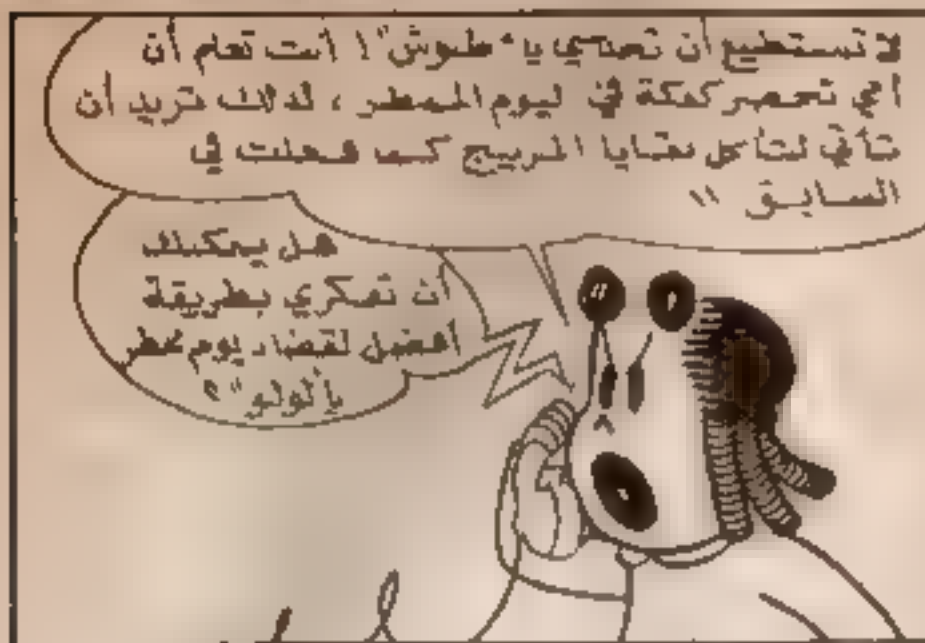 لا تستطيع أن تخدعني يا "طبوش"! أنت تعلم أن
أمي تحضر كعكة في ليوم الممطر، لذلك تريد أن
تأتي لتأكل بقايا المزيج كما فعلت في
السابق !!
هل يمكنك
أن تفكري بطريقة
أفضل لقضاء يوم ممطر
يا "لولو"؟